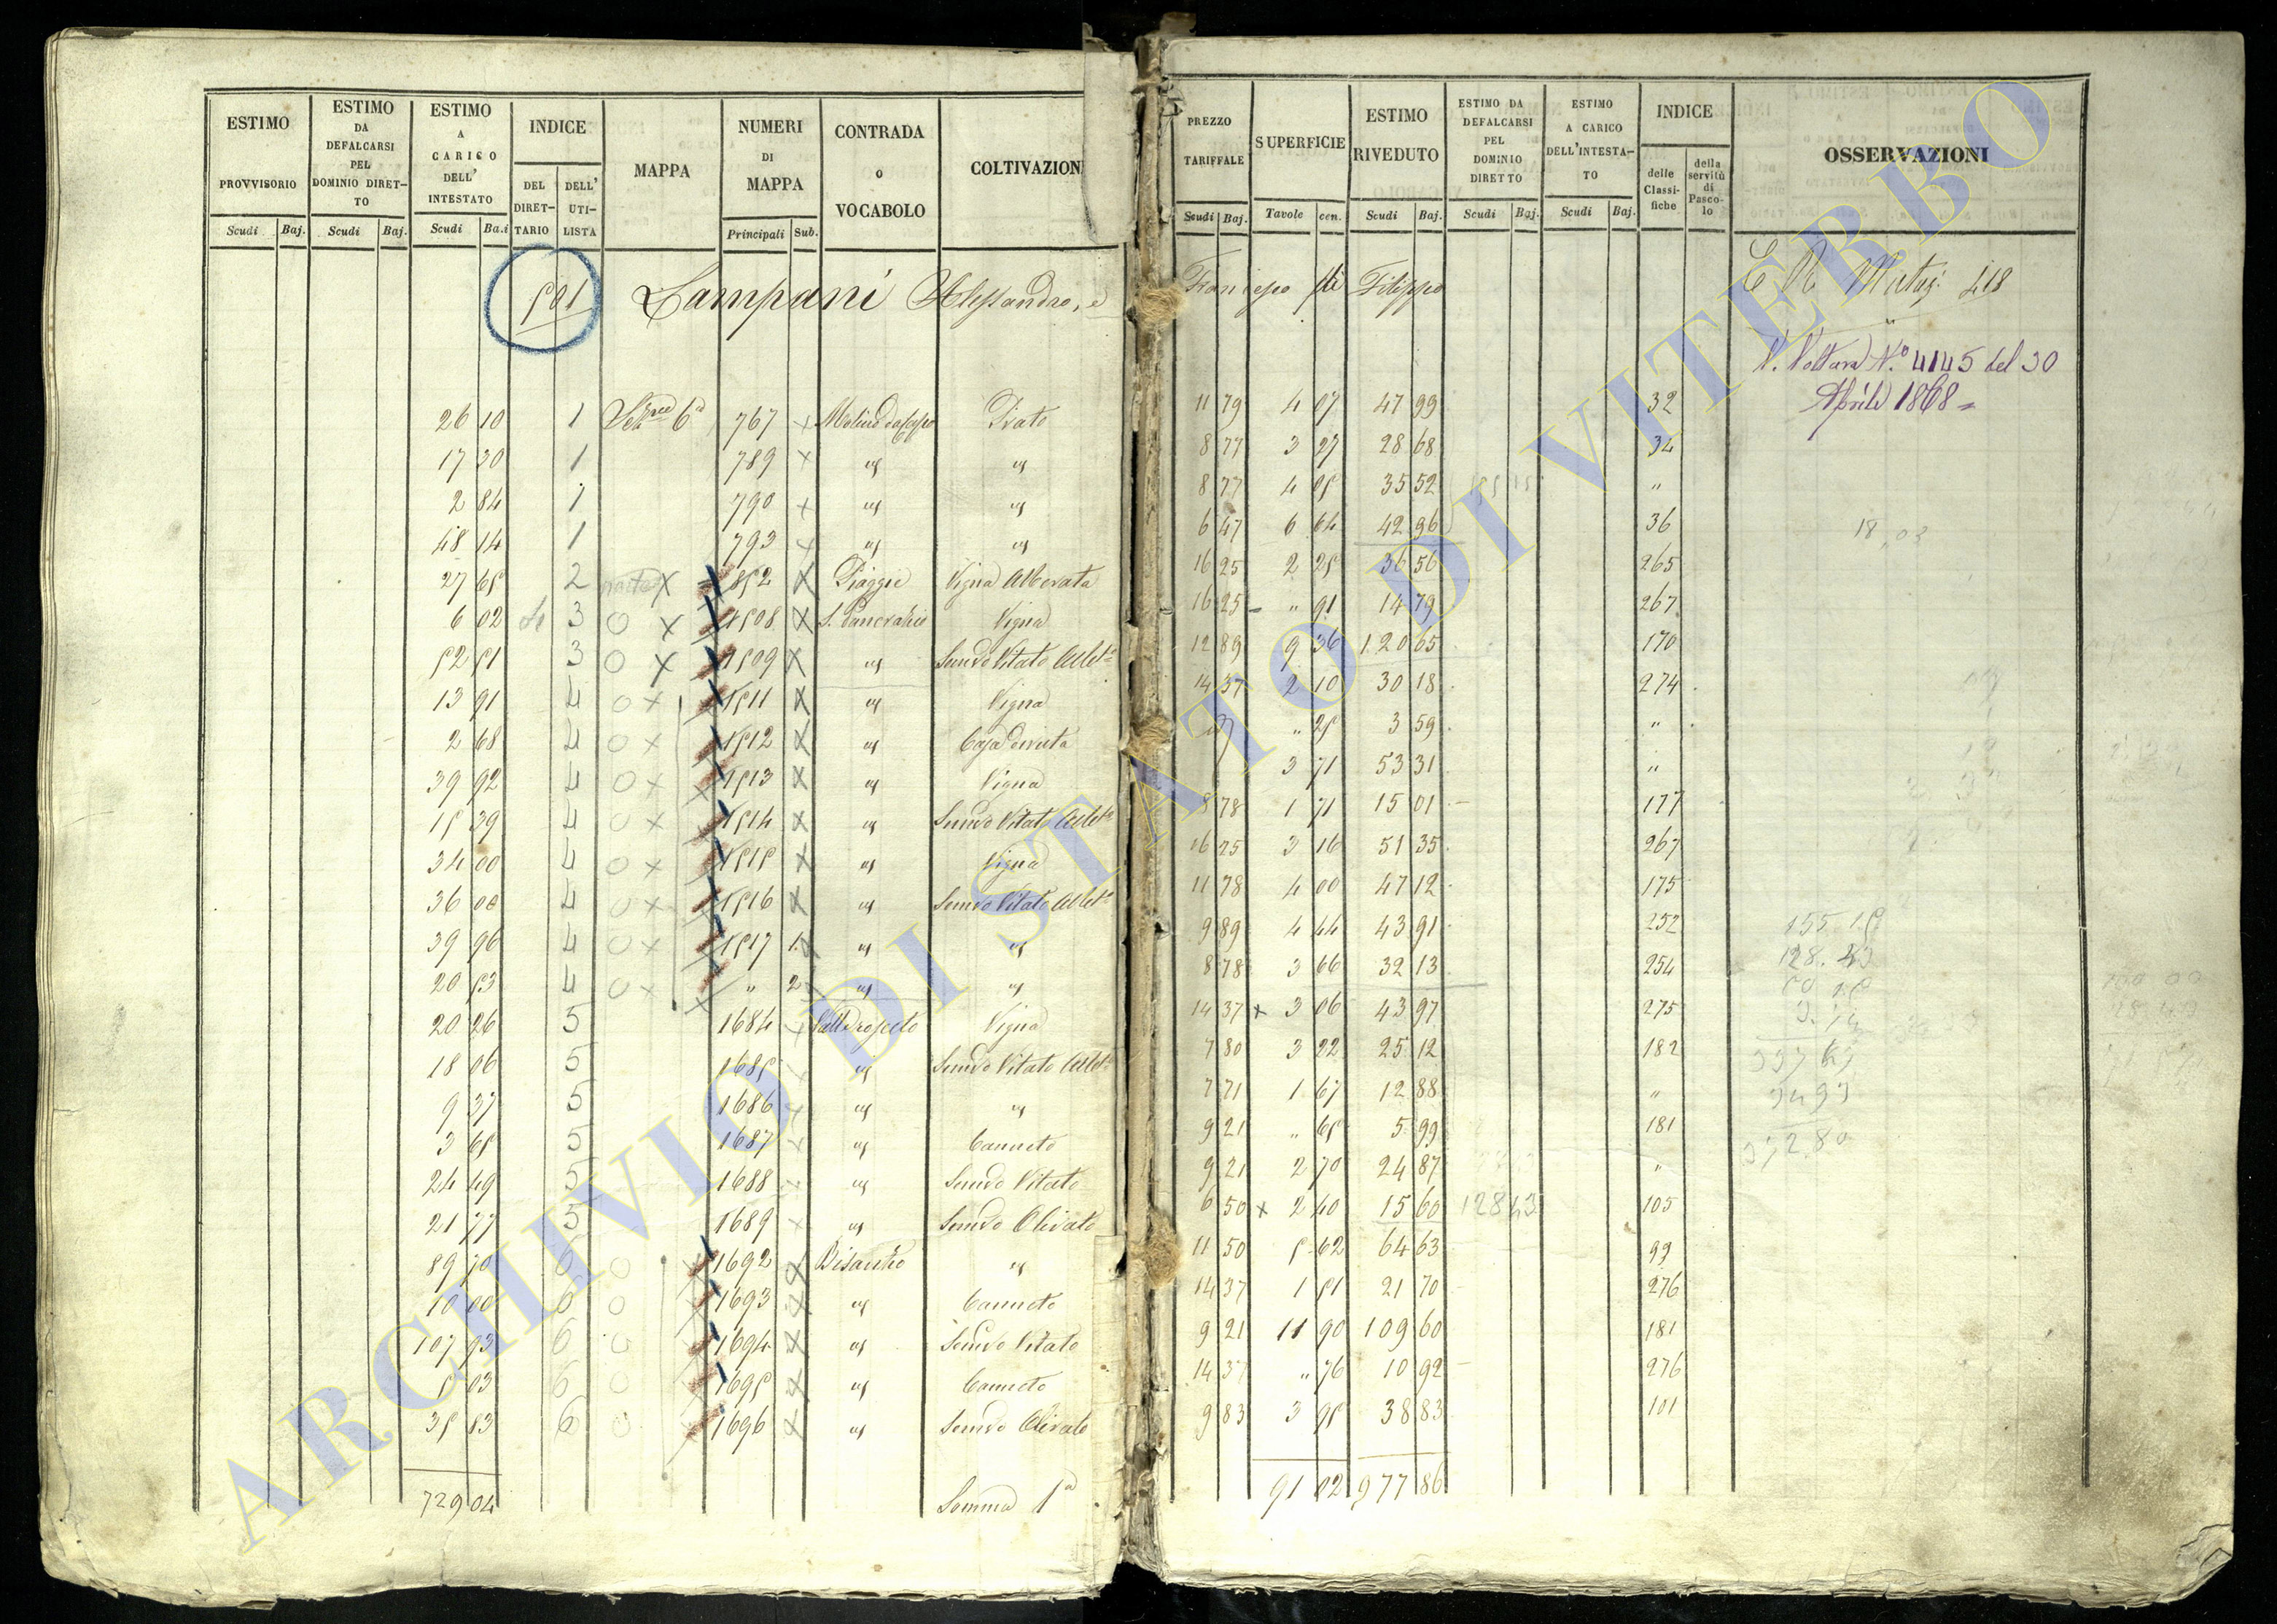 ESTIMO PROVVISORIO Scudi Baj.
ESTIMO DA DEFALCARSI PEL DOMINIO DIRET-TO Scudi Baj.
ESTIMO A CARICO DELL' INTESTATO Scudi Ba.i
INDICE DEL DIRET-TARIO DELL' UTI-LISTA
MAPPA
NUMERI DI MAPPA Principali Sub.
CONTRADA o VOCABOLO
COLTIVAZION
PREZZO TARIFFALE Scudi Baj.
SUPERFICIE Tavole cen.
ESTIMO RIVEDUTO Scudi Baj.
ESTIMO DA DEFALCARSI PEL DOMINIO DIRETTO Scudi Baj.
ESTIMO A CARICO DELL'INTESTA-TO Scudi Baj.
INDICE delle Classi-fiche della servitù di Pasco-lo
OSSERVAZIONI
501 Lampani Alessandro, e Francesco di Filippo
418
N.º 4145 del 30
Aprile 1868
26 10 1 6ª 767 Prato 11 79 4 07 47 99 32
17 30 1 789 " " 8 77 3 27 28 68 34
2 84 1 790 " " 8 77 4 05 35 52 "
48 14 1 793 " " 6 47 6 64 42 96 36
27 65 2 852 Piaggie Vigna Alberata 16 25 2 25 36 56 265
6 02 3 1508 S. Pancrazio Vigna 16 25 " 91 14 79 267
52 51 3 1509 " Semvo Vitato Albto 12 89 9 36 120 65 170
13 91 4 1511 " Vigna 14 37 2 10 30 18 274
2 68 4 1512 " Casa diruta " 25 3 59 "
39 92 4 1513 " Vigna 3 71 53 31 "
15 39 4 1514 " Semvo Vitato Albto 8 78 1 71 15 01 177
34 00 4 1515 " Vigna 16 25 3 16 51 35 267
36 00 4 1516 " Semvo Vitato Albto 11 78 4 00 47 12 175
39 96 4 1517 1 " " 9 89 4 44 43 91 252
20 53 4 " 2 " " 8 78 3 66 32 13 254
20 26 5 1684 Vigna 14 37 3 06 43 97 275
18 06 5 1685 " Semvo Vitato Albto 7 80 3 22 25 12 182
9 27 5 1686 " " 7 71 1 67 12 88 "
3 65 5 1687 " Canneto 9 21 " 65 5 99 181
24 49 5 1688 " Semvo Vitato 9 21 2 70 24 87 "
21 77 5 1689 " Semvo Olivato 6 50 2 40 15 60 128 43 105
89 70 6 1692 " 11 50 5 62 64 63 99
10 00 6 1693 " Canneto 14 37 1 51 21 70 276
107 93 6 1694 " Semvo Vitato 9 21 11 90 109 60 181
5 03 6 1695 " Canneto 14 37 " 76 10 92 276
35 83 6 1696 " Semvo Olivato 9 83 3 95 38 83 101
729 04 Somma 1ª 91 02 977 86
18,03
155.15
128.43
ARCHIVIO DI STATO DI VITERBO